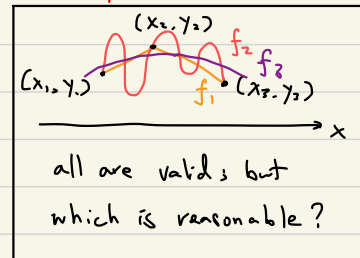 (x₂, y₂)
f₂
f₃
(x₁, y₁)
f₁
(x₃, y₃)
x
all are valid; but
which is reasonable?